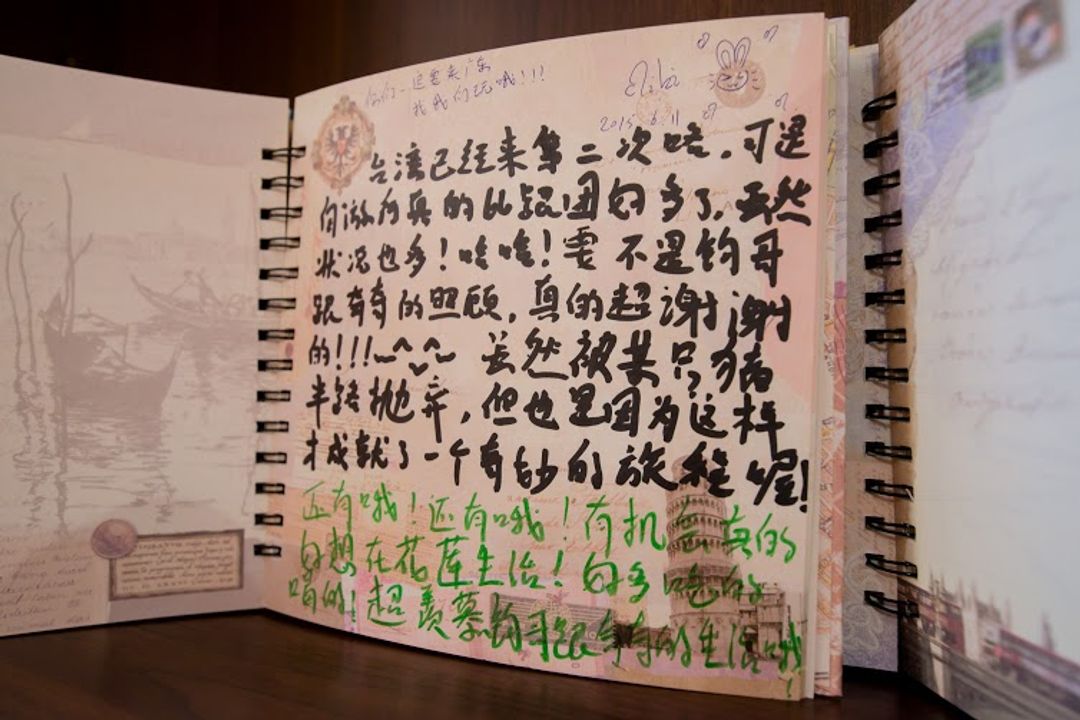 你们一定要来广东
找我们玩哦!!!
2015.6.11
台湾已经来第二次咯,可是
向游为真的比跟团好多了,虽然
状况也多!哈哈!要不是钧哥
跟奇奇的照顾,真的超谢谢
的!!!~^ ^~ 虽然被某只狗
半路抛弃,但也是因为这样
才成就了一个奇妙的旅程喔!
还有哦!还有哦!有机会真的
好想在花莲生活!好多吃的
喝的!超羡慕钧哥跟奇奇的生活哦!